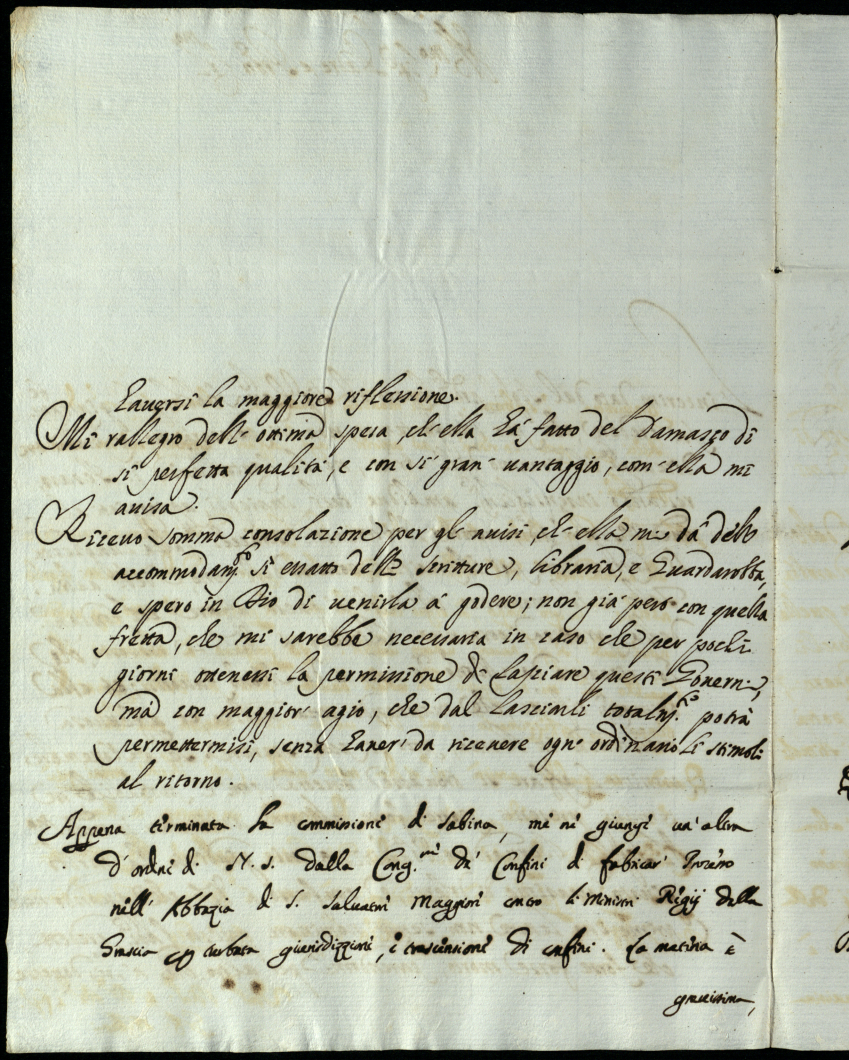 hauersi la maggiore riflessione.
Mi rallegro dell' ottima spesa, ch'ella há fatto del Damasco di
sì perfetta qualità, e con sì gran' uantaggio, com'ella mi
auisa.
Riceuo somma consolazione per gl' auisi, ch'ella mi dá dello
accommodam.to si esatto delle scritture, libraria, e Guardarobba,
e spero in Dio di uenirla á godere; non giá però con quella
fretta, che mi sarebbe necessaria in caso che per pochi
giorni ottenessi la permissione di lasciare questi Gouerni,
má con maggior' agio, che dal lasciarli totalm.to potrá
permettermisi, senza hauer' da riceuere ogn' ordinario li stimoli
al ritorno.
Appena terminata la commissione di Sabina, me ne giunge un' altra
d' ordine di N. S. dalla Cong.ne de' Confini di fabricar'
nell' Abbazia di S. Saluatore Maggiore contro li Ministri Regij della
per turbata giurisdizzione, e trascensione di confini. La materia è
grauissima,